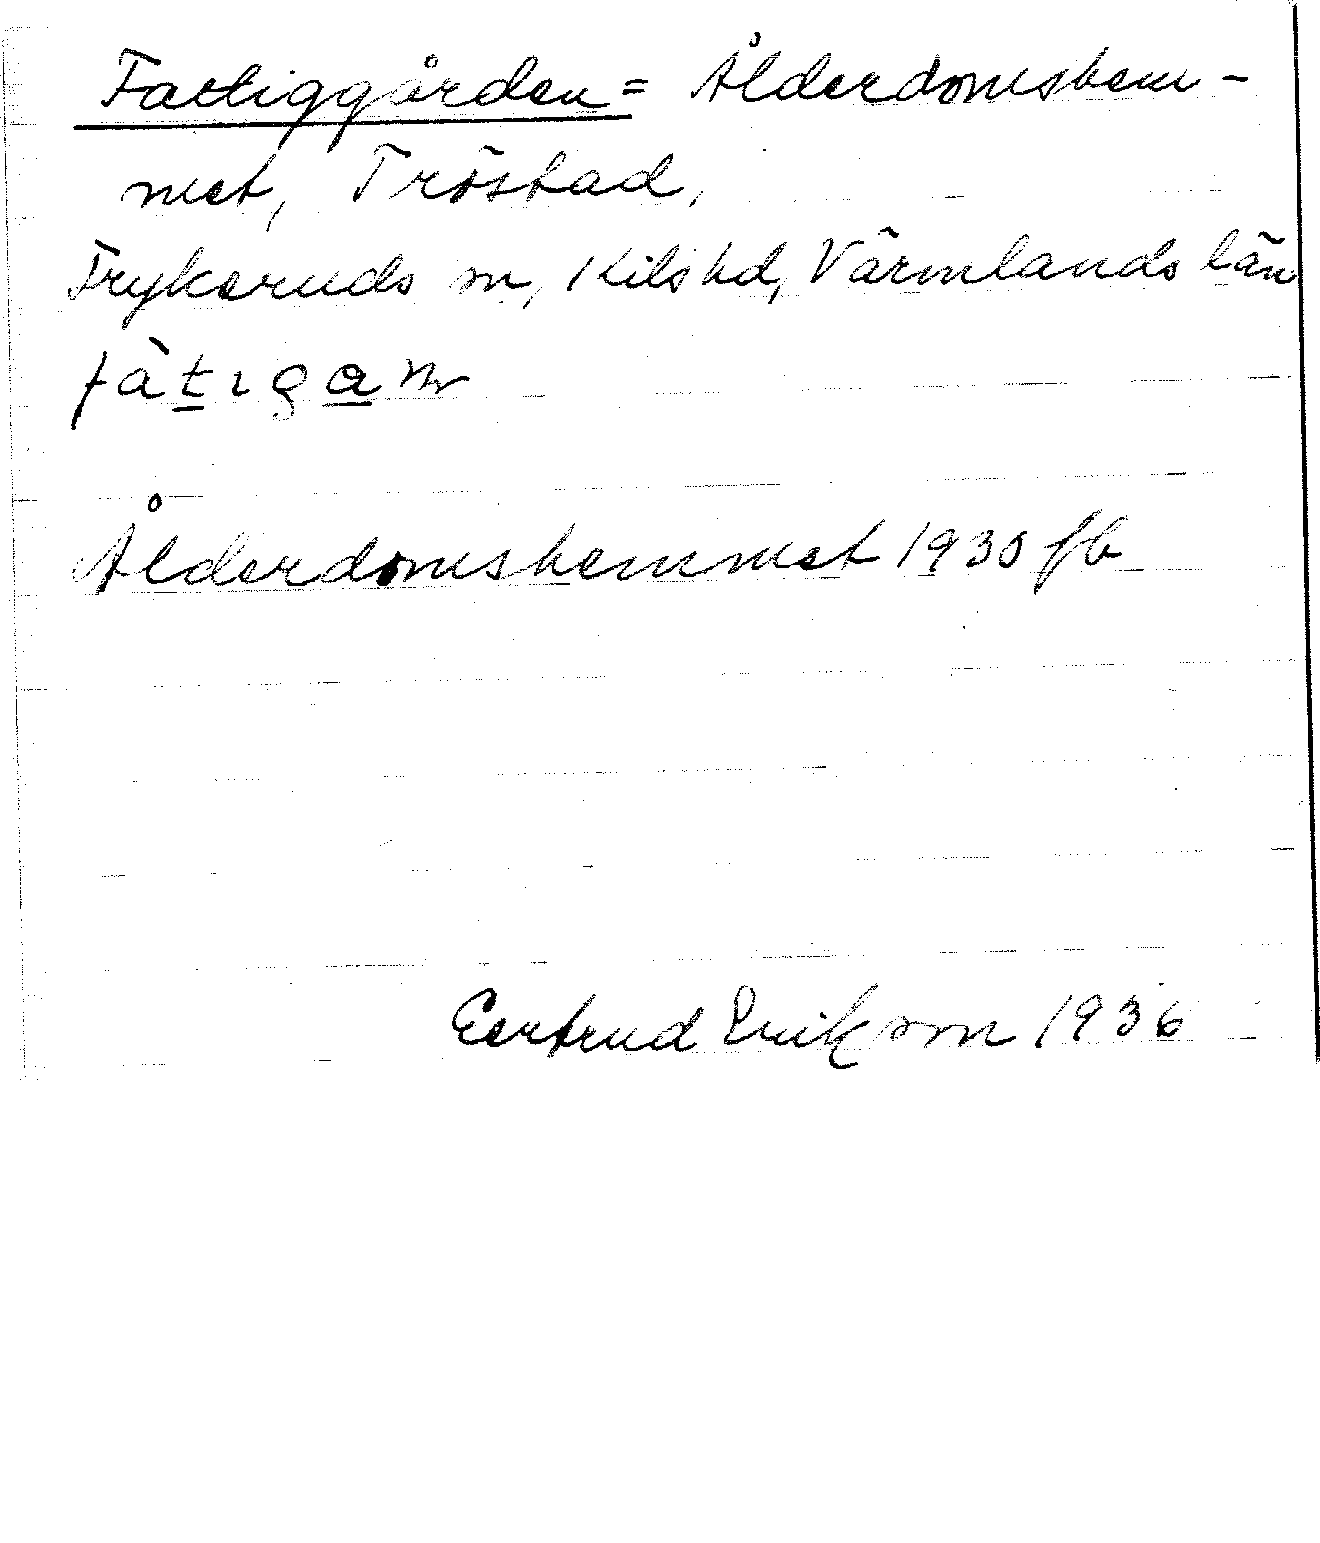 Fattiggården = Ålderdomshem-
met, Tröstad,
Frykeruds sn, Kils hd, Värmlands län
fàtıgan
Ålderdomshemmet 1930 fb
Gertrud Erikson 1936